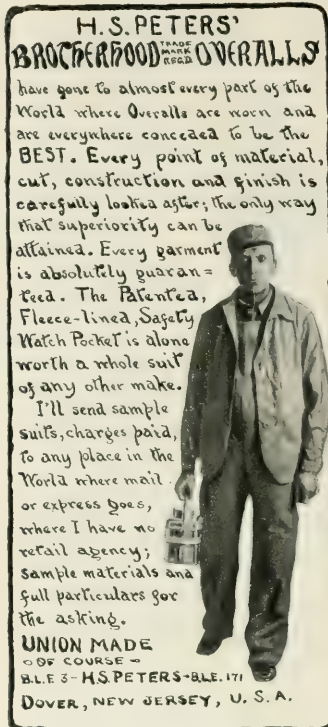 H.S.PETERS'
BROTHERHOOD TRADE MARK REG'D. OVERALLS
have gone to almost every part of the
World where Overalls are worn and
are everywhere conceded to be the
BEST. Every point of material,
cut, construction and finish is
carefully looked after; the only way
that superiority can be
attained. Every garment
is absolutely guaran=
teed. The Patented,
Fleece-lined, Safety
Watch Pocket is alone
worth a whole suit
of any other make.
I'll send sample
suits, charges paid,
to any place in the
World where mail
or express goes,
where I have no
retail agency;
sample materials and
full particulars for
the asking.
UNION MADE
OF COURSE
B.L.E 3 - H.S. PETERS - B.L.E. 171
DOVER, NEW JERSEY, U. S. A.